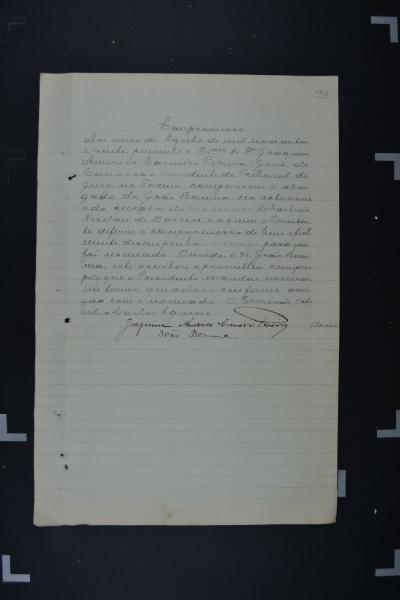 Compromisso
Aos cinco de Agosto de mil novecentos
e vinte, presente o Exmo. Sr. Dr. Joaquim
Americo Carneiro Pereira, Juiz de
Comarca e Presidente do Tribunal do
Jury, no Forum, compareceu o advo-
gado dr. João Bonuma,
Sebastião
Nicolau de Barros, e a quem o Presiden-
te deferiu o compromisso de bem e fiel-
mente desempenhar o cargo para que
foi nomeado. Ouvido, o Dr. João Bonu-
ma, este aceitou e prometteu cumprir
pelo que o Presidente mandou lavrar
este termo, que assigna
com o nomeado. O Escrivão,
Carlos
Joaquim Americo Carneiro Pereira
João Bonuma.